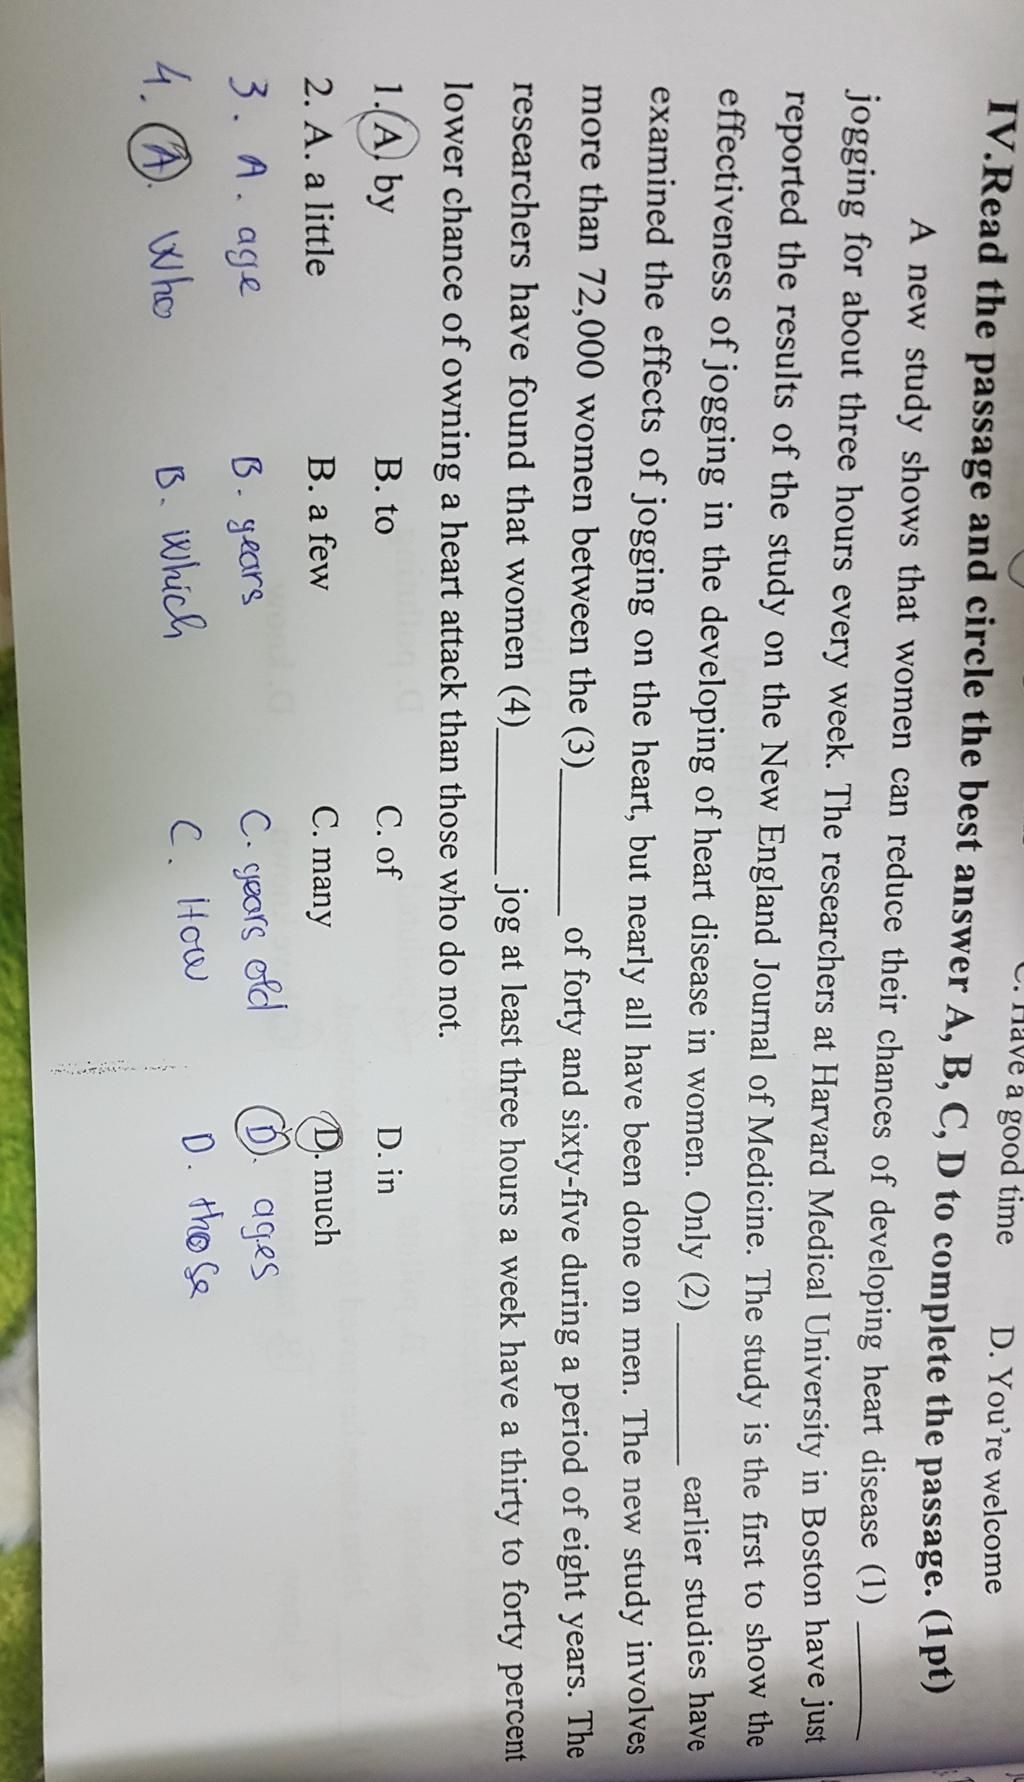 C. Have a good time D. You're welcome
IV.Read the passage and circle the best answer A, B, C, D to complete the passage. (1pt)
A new study shows that women can reduce their chances of developing heart disease (1) ______
jogging for about three hours every week. The researchers at Harvard Medical University in Boston have just
reported the results of the study on the New England Journal of Medicine. The study is the first to show the
effectiveness of jogging in the developing of heart disease in women. Only (2) ______ earlier studies have
examined the effects of jogging on the heart, but nearly all have been done on men. The new study involves
more than 72,000 women between the (3)______ of forty and sixty-five during a period of eight years. The
researchers have found that women (4)______ jog at least three hours a week have a thirty to forty percent
lower chance of owning a heart attack than those who do not.
1. A. by B. to C. of D. in
2. A. a little B. a few C. many D. much
3. A. age B. years C. years old D. ages
4. A. Who B. Which C. How D. those